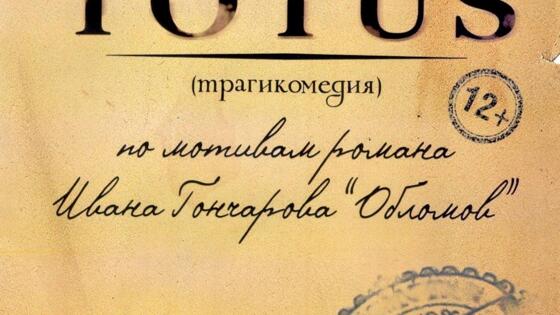 TOTUS
(трагикомедия)
12+
по мотивам романа
Ивана Гончарова "Обломов"